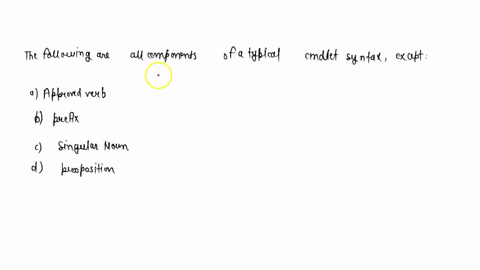 The following are all components of a typical cmdlet syntax, except:
a) Approved verb
b) prefix
c) Singular Noun
d) preoposition